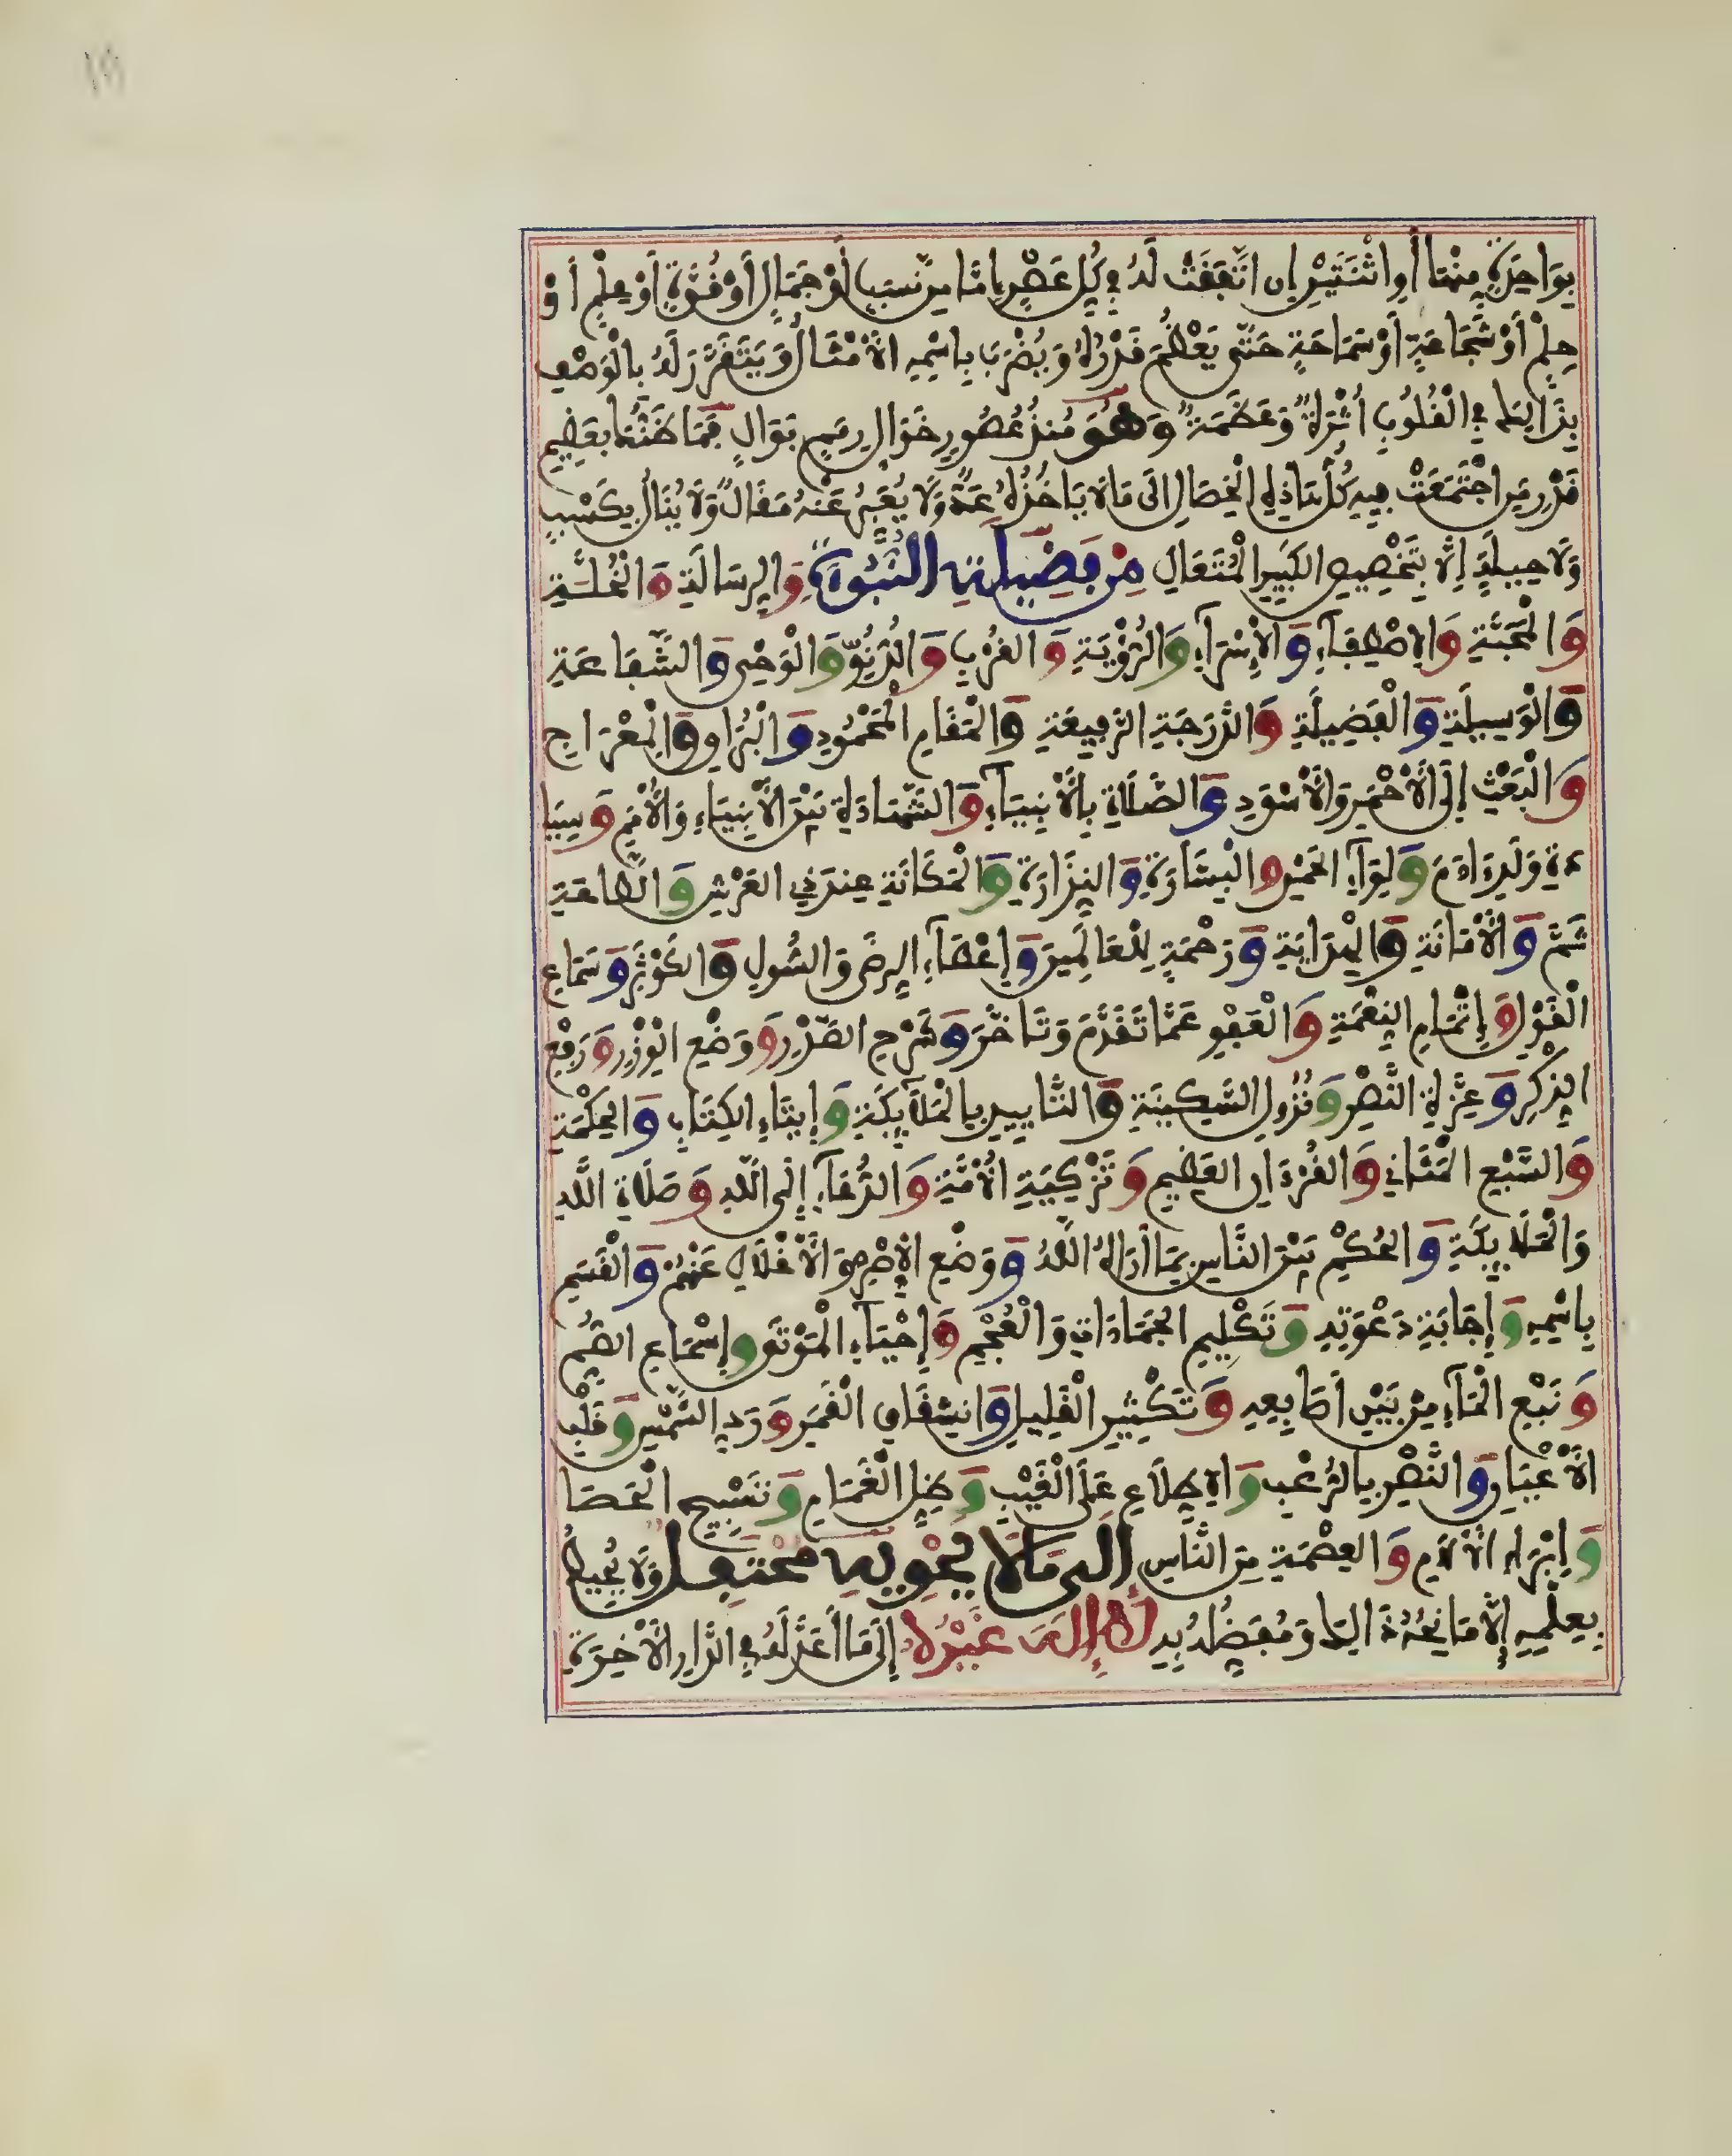 بِوَاحِدَةٍ مِنْهَا أَوِ اثْنَتَيْنِ إِنِ اتَّفَقَتْ لَهُ فِي كُلِّ عَصْرٍ إِمَّا مِنْ نَسَبٍ أَوْ جَمَالٍ أَوْ قُوَّةٍ أَوْ عِلْمٍ أَوْ
حِلْمٍ أَوْ شَجَاعَةٍ أَوْ سَمَاحَةٍ حَتَّى يَعْظُمَ قَدْرُهُ وَيُضْرَبَ بِاسْمِهِ الْأَمْثَالُ وَيَتَقَرَّرَ لَهُ بِالْوَصْفِ
بِذَالِكَ فِي الْقُلُوبِ أُثْرَةٌ وَعَظَمَةٌ وَهُوَ مُنْذُ عُصُورٍ خَوَالٍ رِمَمٍ بَوَالٍ فَمَا ظَنُّكَ بِعَظِيمِ
قَدْرِ مَنِ اجْتَمَعَتْ فِيهِ كُلُّ هَاذِهِ الْخِصَالِ إِلَى مَا لَا يَاخُذُهُ عَدٌّ وَلَا يُعَبِّرُ عَنْهُ مَقَالٌ وَلَا يُنَالُ بِكَسْبٍ
وَلَا حِيلَةٍ إِلَّا بِتَخْصِيصِ الْكَبِيرِ الْمُتَعَالِ مِنْ فَضِيلَةِ النُّبُوَّةِ وَالرِّسَالَةِ وَالْخُلَّةِ
وَالْمَحَبَّةِ وَالِاصْطِفَآءِ وَالْإِسْرَآءِ وَالرُّؤْيَةِ وَالْقُرْبِ وَالدُّنُوِّ وَالْوَحْيِ وَالشَّفَاعَةِ
وَالْوَسِيلَةِ وَالْفَضِيلَةِ وَالدَّرَجَةِ الرَّفِيعَةِ وَالْمَقَامِ الْمَحْمُودِ وَالْبُرَاقِ وَالْمِعْرَاجِ
وَالْبَعْثِ إِلَى الْأَحْمَرِ وَالْأَسْوَدِ وَالصَّلَاةِ بِالْأَنْبِيَآءِ وَالشَّهَادَةِ بَيْنَ الْأَنْبِيَاءِ وَالْأُمَمِ وَسِيَا
دَةِ وَلَدِ ءَادَمَ وَلِوَآءِ الْحَمْدِ وَالْبِشَارَةِ وَالنِّذَارَةِ وَالْمَكَانَةِ عِنْدَ ذِي الْعَرْشِ وَالطَّاعَةِ
ثَمَّ وَالْأَمَانَةِ وَالْهِدَايَةِ وَرَحْمَةٍ لِلْعَالَمِينَ وَإِعْطَآءِ الرِّضَى وَالسُّولِ وَالْكَوْثَرِ وَسَمَاعِ
الْقَوْلِ وَإِتْمَامِ النِّعْمَةِ وَالْعَفْوِ عَمَّا تَقَدَّمَ وَتَأَخَّرَ وَشَرْحِ الصَّدْرِ وَوَضْعِ الْوِزْرِ وَرَفْعِ
الذِّكْرِ وَعِزَّةِ النَّصْرِ وَنُزُولِ السَّكِينَةِ وَالتَّايِيدِ بِالْمَلَآئِكَةِ وَإِيتَاءِ الْكِتَابِ وَالْحِكْمَةِ
وَالسَّبْعِ الْمَثَانِي وَالْقُرْءَانِ الْعَظِيمِ وَتَزْكِيَةِ الْأُمَّةِ وَالدُّعَآءِ إِلَى اللَّهِ وَصَلَاةِ اللَّهِ
وَالْمَلَائِكَةِ وَالْحُكْمِ بَيْنَ النَّاسِ بِمَا أَرَاهُ اللَّهُ وَوَضْعِ الْإِصْرِ وَالْأَغْلَالِ عَنْهُمْ وَالْقَسَمِ
بِاسْمِهِ وَإِجَابَةِ دَعْوَتِهِ وَتَكْلِيمِ الْجَمَادَاتِ وَالْعُجْمِ وَإِحْيَآءِ الْمَوْتَى وَإِسْمَاعِ الصُّمِّ
وَنَبْعِ الْمَآءِ مِنْ بَيْنِ أَصَابِعِهِ وَتَكْثِيرِ الْقَلِيلِ وَانْشِقَاقِ الْقَمَرِ وَرَدِّ الشَّمْسِ وَقَلْبِ
الْأَعْيَانِ وَالنَّصْرِ بِالرُّعْبِ وَالِاطِّلَاعِ عَلَى الْغَيْبِ وَظِلِّ الْغَمَامِ وَتَسْبِيحِ الْحَصَا
وَإِبْرَاءِ الْآلَامِ وَالْعِصْمَةِ مِنَ النَّاسِ إِلَى مَا لَا يَحْوِيهِ مُحْتَفِلٌ وَلَا يُحِيطُ
بِعِلْمِهِ إِلَّا مَانِحُهُ ذَالِكَ وَمُفَضِّلُهُ بِهِ لَا إِلَهَ غَيْرُهُ إِلَى مَا أَعَدَّ لَهُ فِي الدَّارِ الْآخِرَةِ